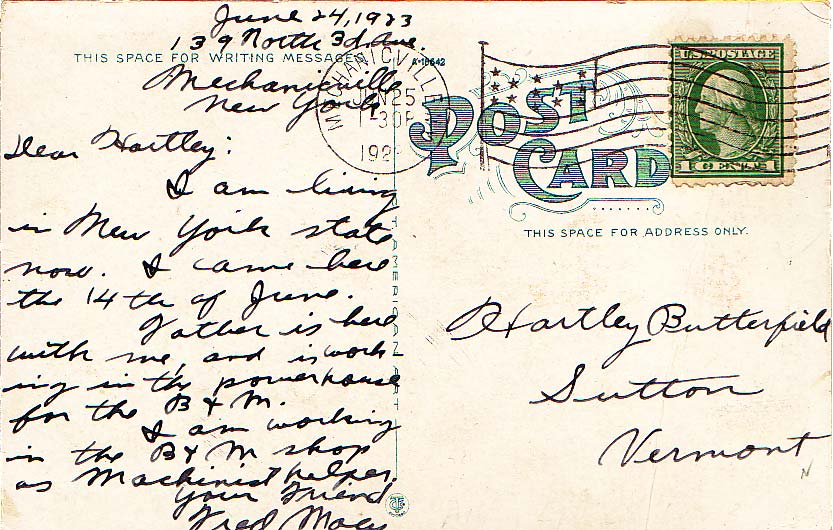 June 24, 1923
139 North 3d. Ave.
THIS SPACE FOR WRITING MESSAGES
A-18642
Mechanicville
New York
Dear Hartley:
I am living
in New York state
now. I came here
the 14th of June.
Father is here
with me, and is work
ing in the powerhouse
for the B & M.
I am working
in the B & M shop
as Machinist helper.
Your Friend
Fred
MECHANICVILLE
JUN 25
192
POST
CARD
U.S. POSTAGE
1 CENT 1
THIS SPACE FOR ADDRESS ONLY.
Hartley Butterfield
Sutton
Vermont